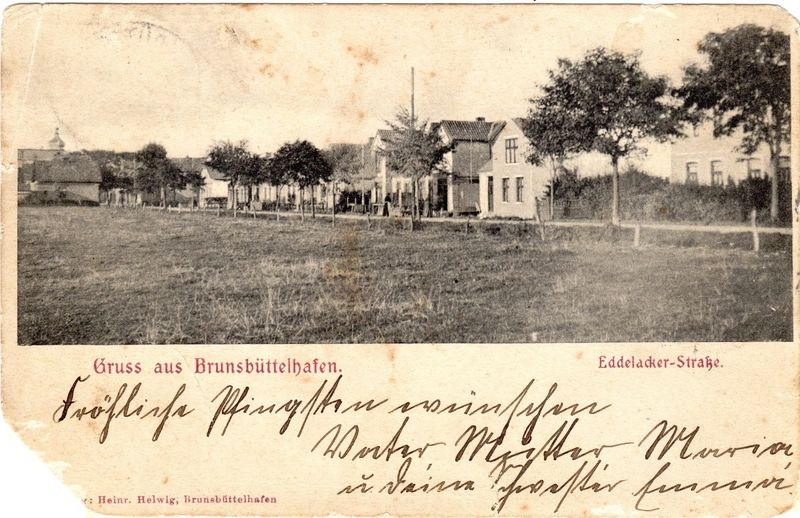 Gruss aus Brunsbüttelhafen.
Eddelacker-Straße.
Fröhliche Pfingsten wünschen
Vater Mutter Maria
u deine Schwester Emma
: Heinr. Helwig, Brunsbüttelhafen